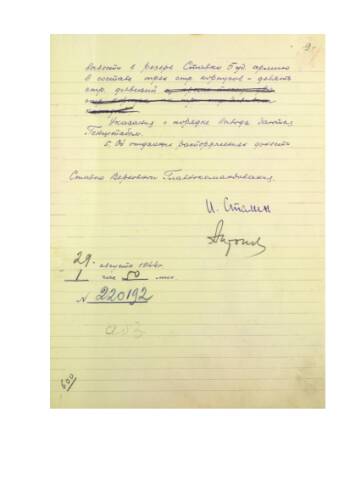 9.
вывести в резерв Ставки 5 уд. армию
в составе трех стр. корпусов – девять
стр. дивизий
Указания о порядке вывода даются
Генштабом.
5. Об отданных распоряжениях донести.
Ставка Верховного Главнокомандования.
И. Сталин
Антонов
29. августа 1944 г.
1 час 50 мин.
N 220192
600